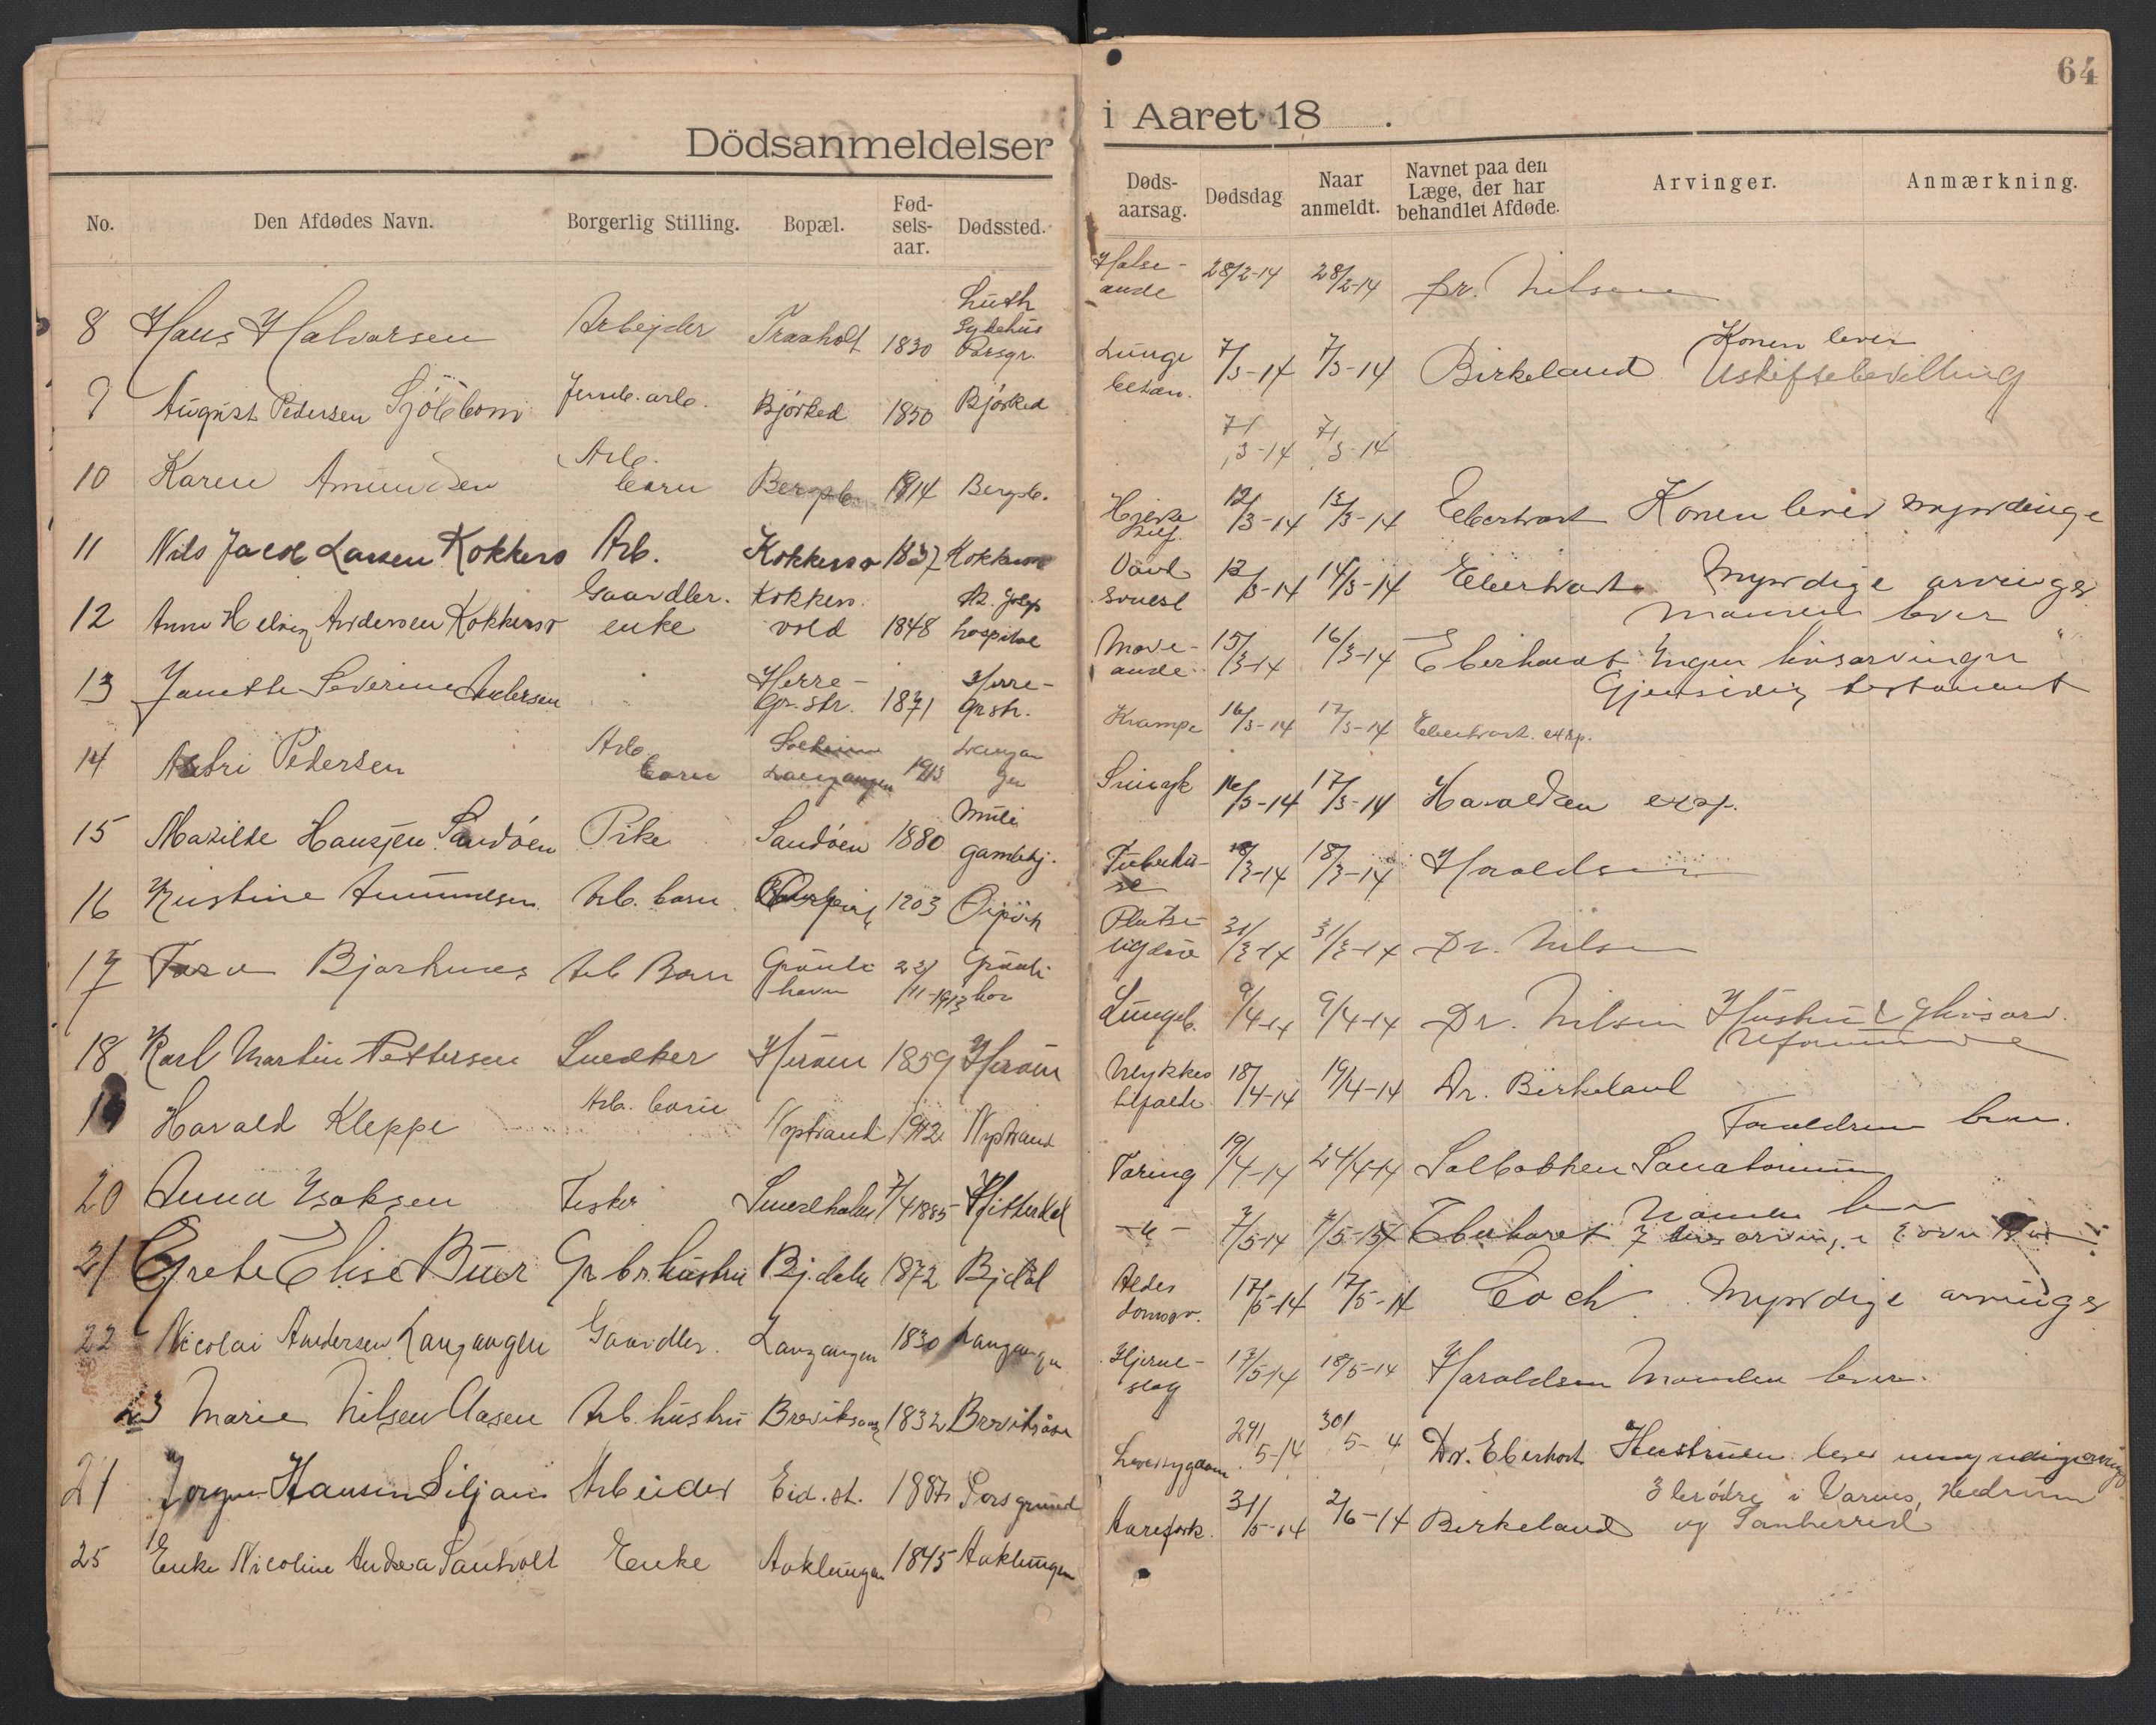 64
Dödsanmeldelser i Aaret 18 .
No. Den Afdødes Navn. Borgerlig Stilling. Bopæl. Fød-sels-aar. Dødssted. Døds-aarsag. Dødsdag Naar anmeldt. Navnet paa den Læge, der har behandlet Afdøde. Arvinger. Anmærkning.
8 Hans Halvorsen Arbejder Traaholt 1830 Luth Sykehus Porsgr. Halse- 28/2-14 28/2-14 Dr. Nilsen
9 August Pedersen Sjöblom Jernb. arb. Bjórked 1850 Bjórked Lunge betæn. 7/3-14 7/3-14 Birkeland Konen lever Uskiftebevilling
10 Karen Amundsen Arb. barn Bergsb. 1914 Bergsb. 7/3-14 7/3-14
11 Nils Jacob Larsen Kokkers Arb. Kokkersv 1837 Kokkers Hjerte 12/3-14 13/3-14 Eberhart Konen lever myndige
12 Anne Helvig Andersen Kokkersv Gaardbr. enke Kokkers vold 1848 St. Josep hospital 12/3-14 14/3-14 Eberhart Myndige arvinger
13 Janethe Severine Andersen Herre- Gr. str. 1871 Herre- Gr str. Mave- 15/3-14 16/3-14 Eberhardt Manden lever Ingen livsarvinger Gjensidig testament
14 Astri Pedersen Arb. barn Langangen 1913 Langan gen Krampe 16/3-14 17/3-14 Eberhart. exp.
15 Mazilde Hansjen Sandóen Pike Sandóen 1880 Muli gamlehj. 16/3-14 17/3-14 Haraldsen exp.
16 Kristine Amundsen Arb. barn 1203 Tuberku- se 18/3-14 18/3-14 Haraldsen
17 Bjarhnes Arb Barn Grönli havn 22/11-1913 Grönli 31/3-14 31/3-14 Dr. Nilsen
18 Karl Martin Pettersen Snedker Heröen 1859 Heröen Lungeb. 9/4-14 9/4-14 Dr. Nilsen Hustru &
19 Harald Kleppe Arb. barn Nystrand 1912 Nystrand Ulykkes tilfælde 18/4-14 19/4-14 Dr. Birkeland Forældrene lever.
20 Anna Ysaksen Fisker 7/4 1885 Hitterdal Tæring 19/4-14 24/4-14 Solbakken Sanatorium
21 Grete Elise Buer Gr br. hustru Bj. dale 1872 Bjdal - " - 7/5-14 7/5-14 Eberharet Manden lever 7 livsarvinge
22 Nicolai Andersen Langangen Gaardbr. Langangen 1830 Langangen Alder domssv. 17/5-14 17/5-14 Coch Myndige arvinger
23 Marie Nilsen Aasen Arb. hustru Breviksaas 1832 Breviksaas Hjerne- slag 17/5-14 18/5-14 Haraldsen Manden lever.
24 Jorgen Hansen Siljan Arbeider Eid. st. 1887 Porsgrund Leversygdom 29/5-14 30/5- 4 Dr. Eberhart Hustruen lever umyndige arving
25 Enke Nicoline Andrea Sanholt Enke Aaklungen 1845 Aaklungen Aarefork. 31/5-14 2/6-14 Birkeland 3 brödre i Varnes, Hedrum og Sanherred